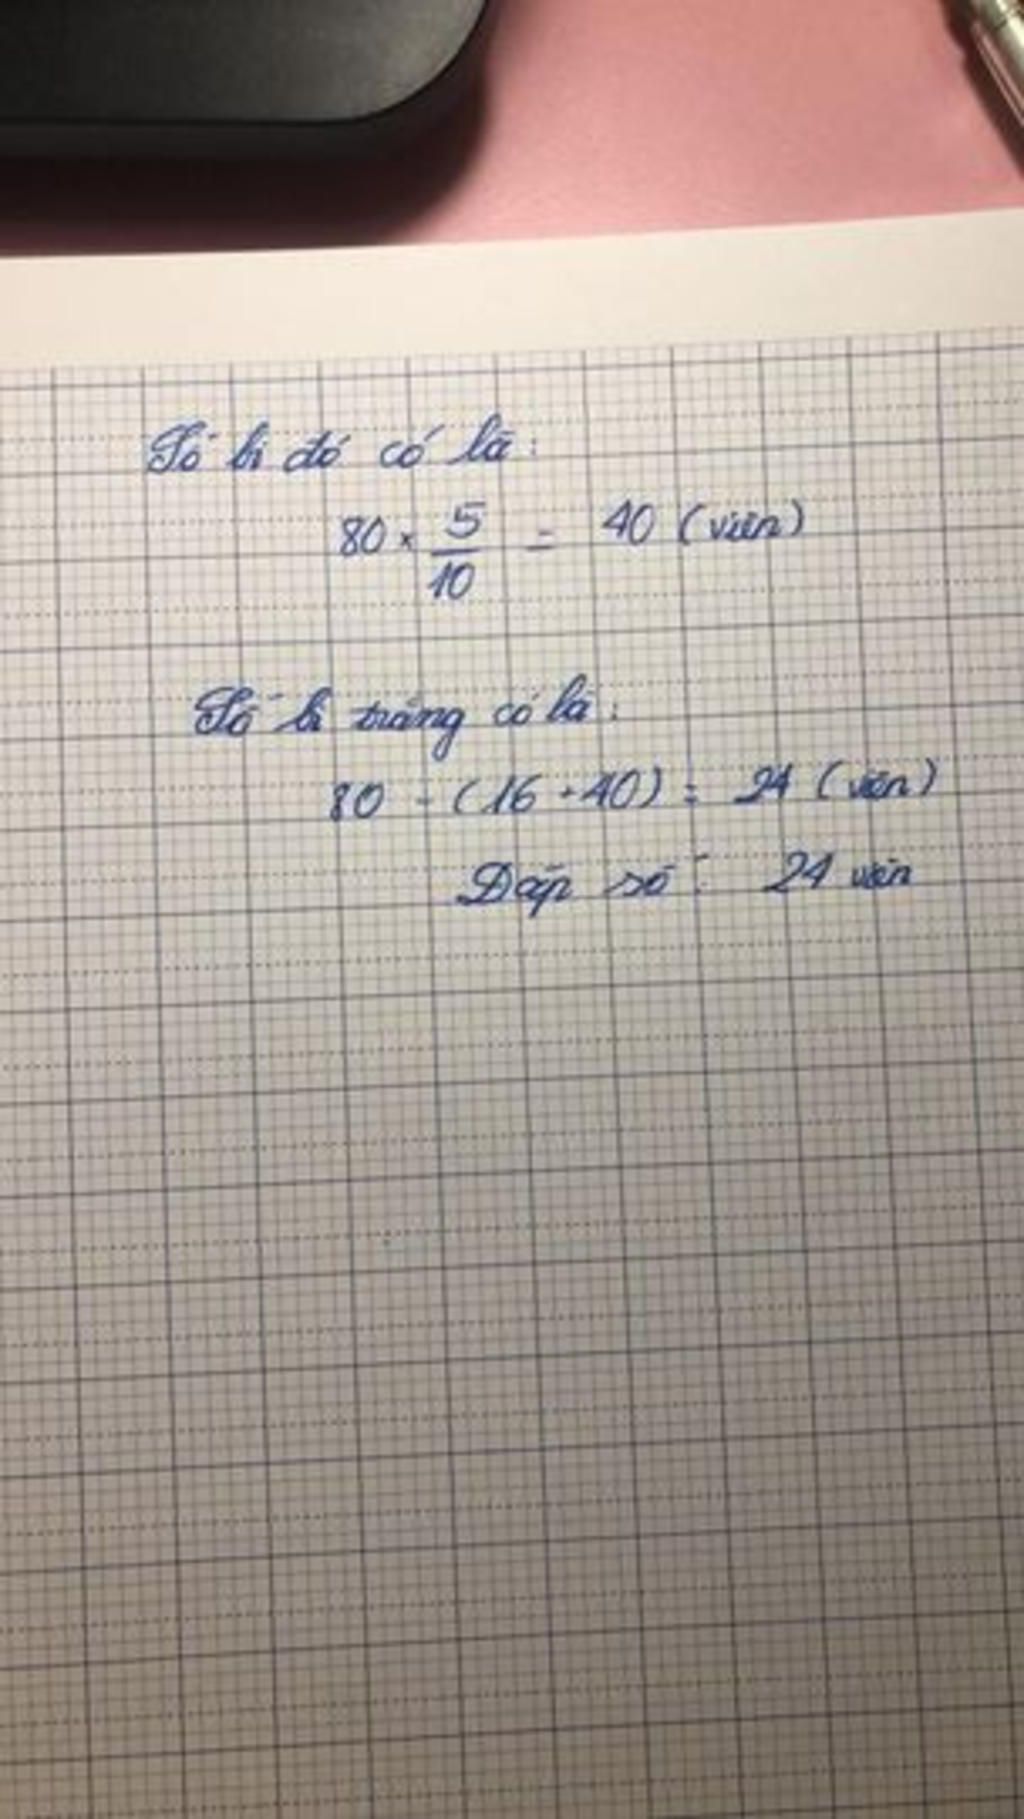 Số bi đỏ có là:
80 × 5/10 = 40 (viên)
Số bi trắng có là:
80 - (16 + 40) = 24 (viên)
Đáp số: 24 viên